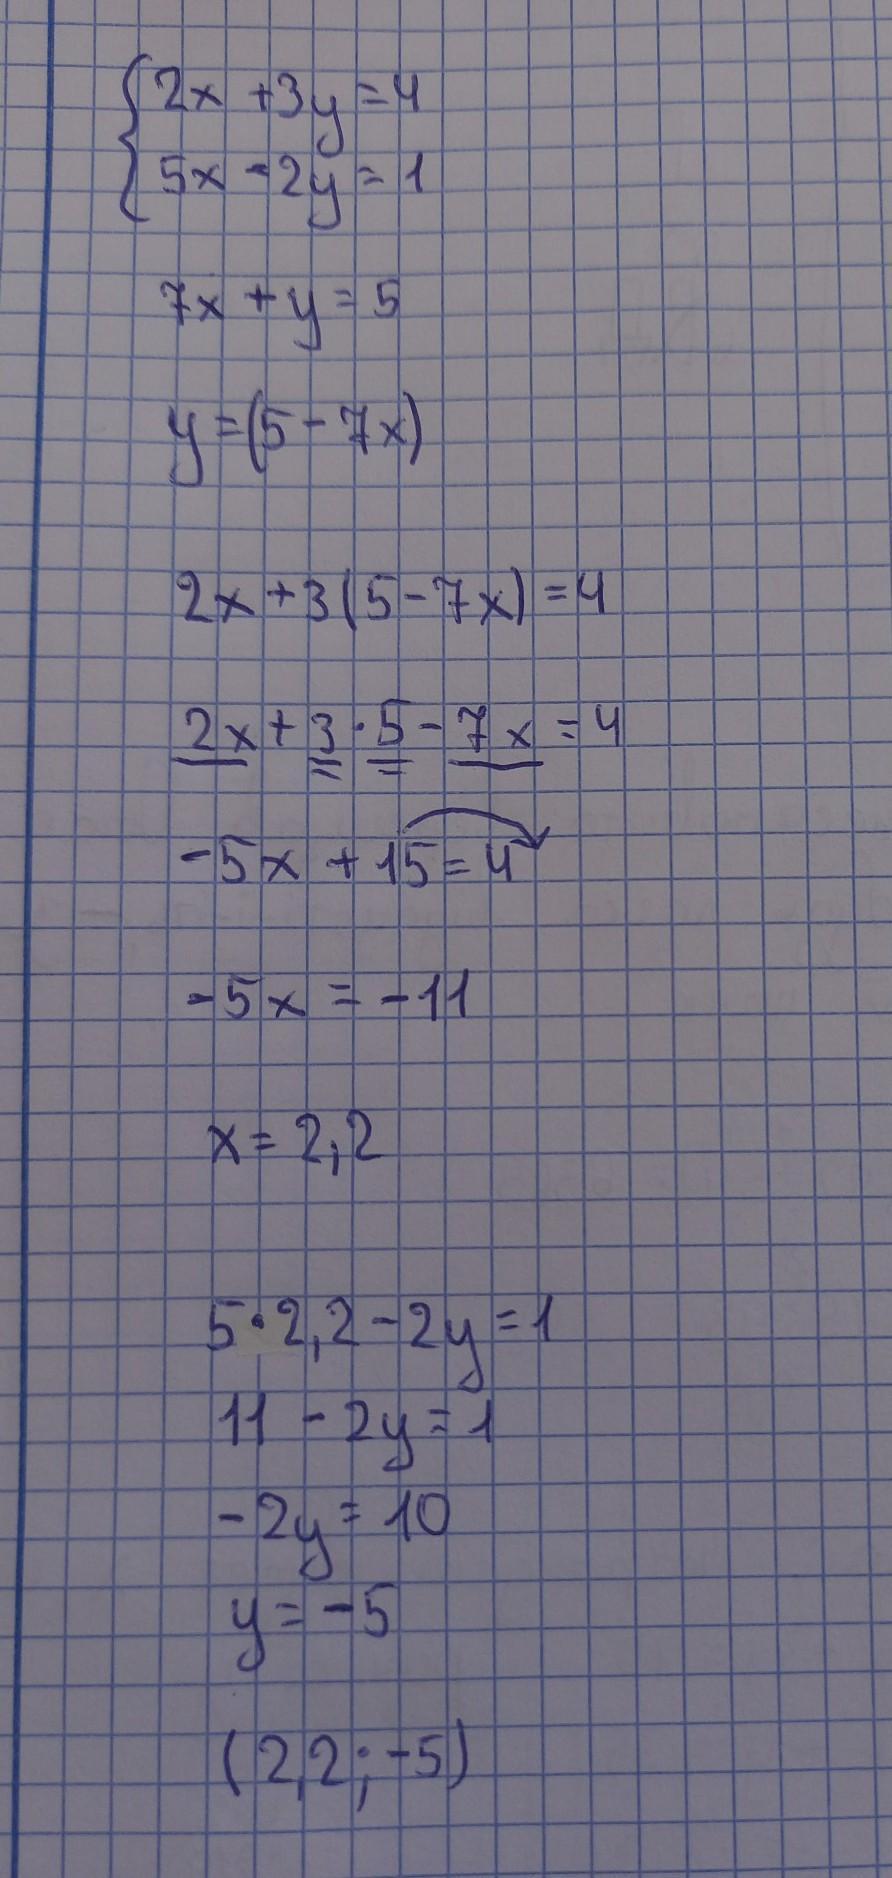 {2x + 3y = 4
5x - 2y = 1
7x + y = 5
y = (5 - 7x)
2x + 3(5 - 7x) = 4
2x + 3 · 5 - 7x = 4
-5x + 15 = 4
-5x = -11
x = 2,2
5 · 2,2 - 2y = 1
11 - 2y = 1
-2y = 10
y = -5
(2,2; -5)